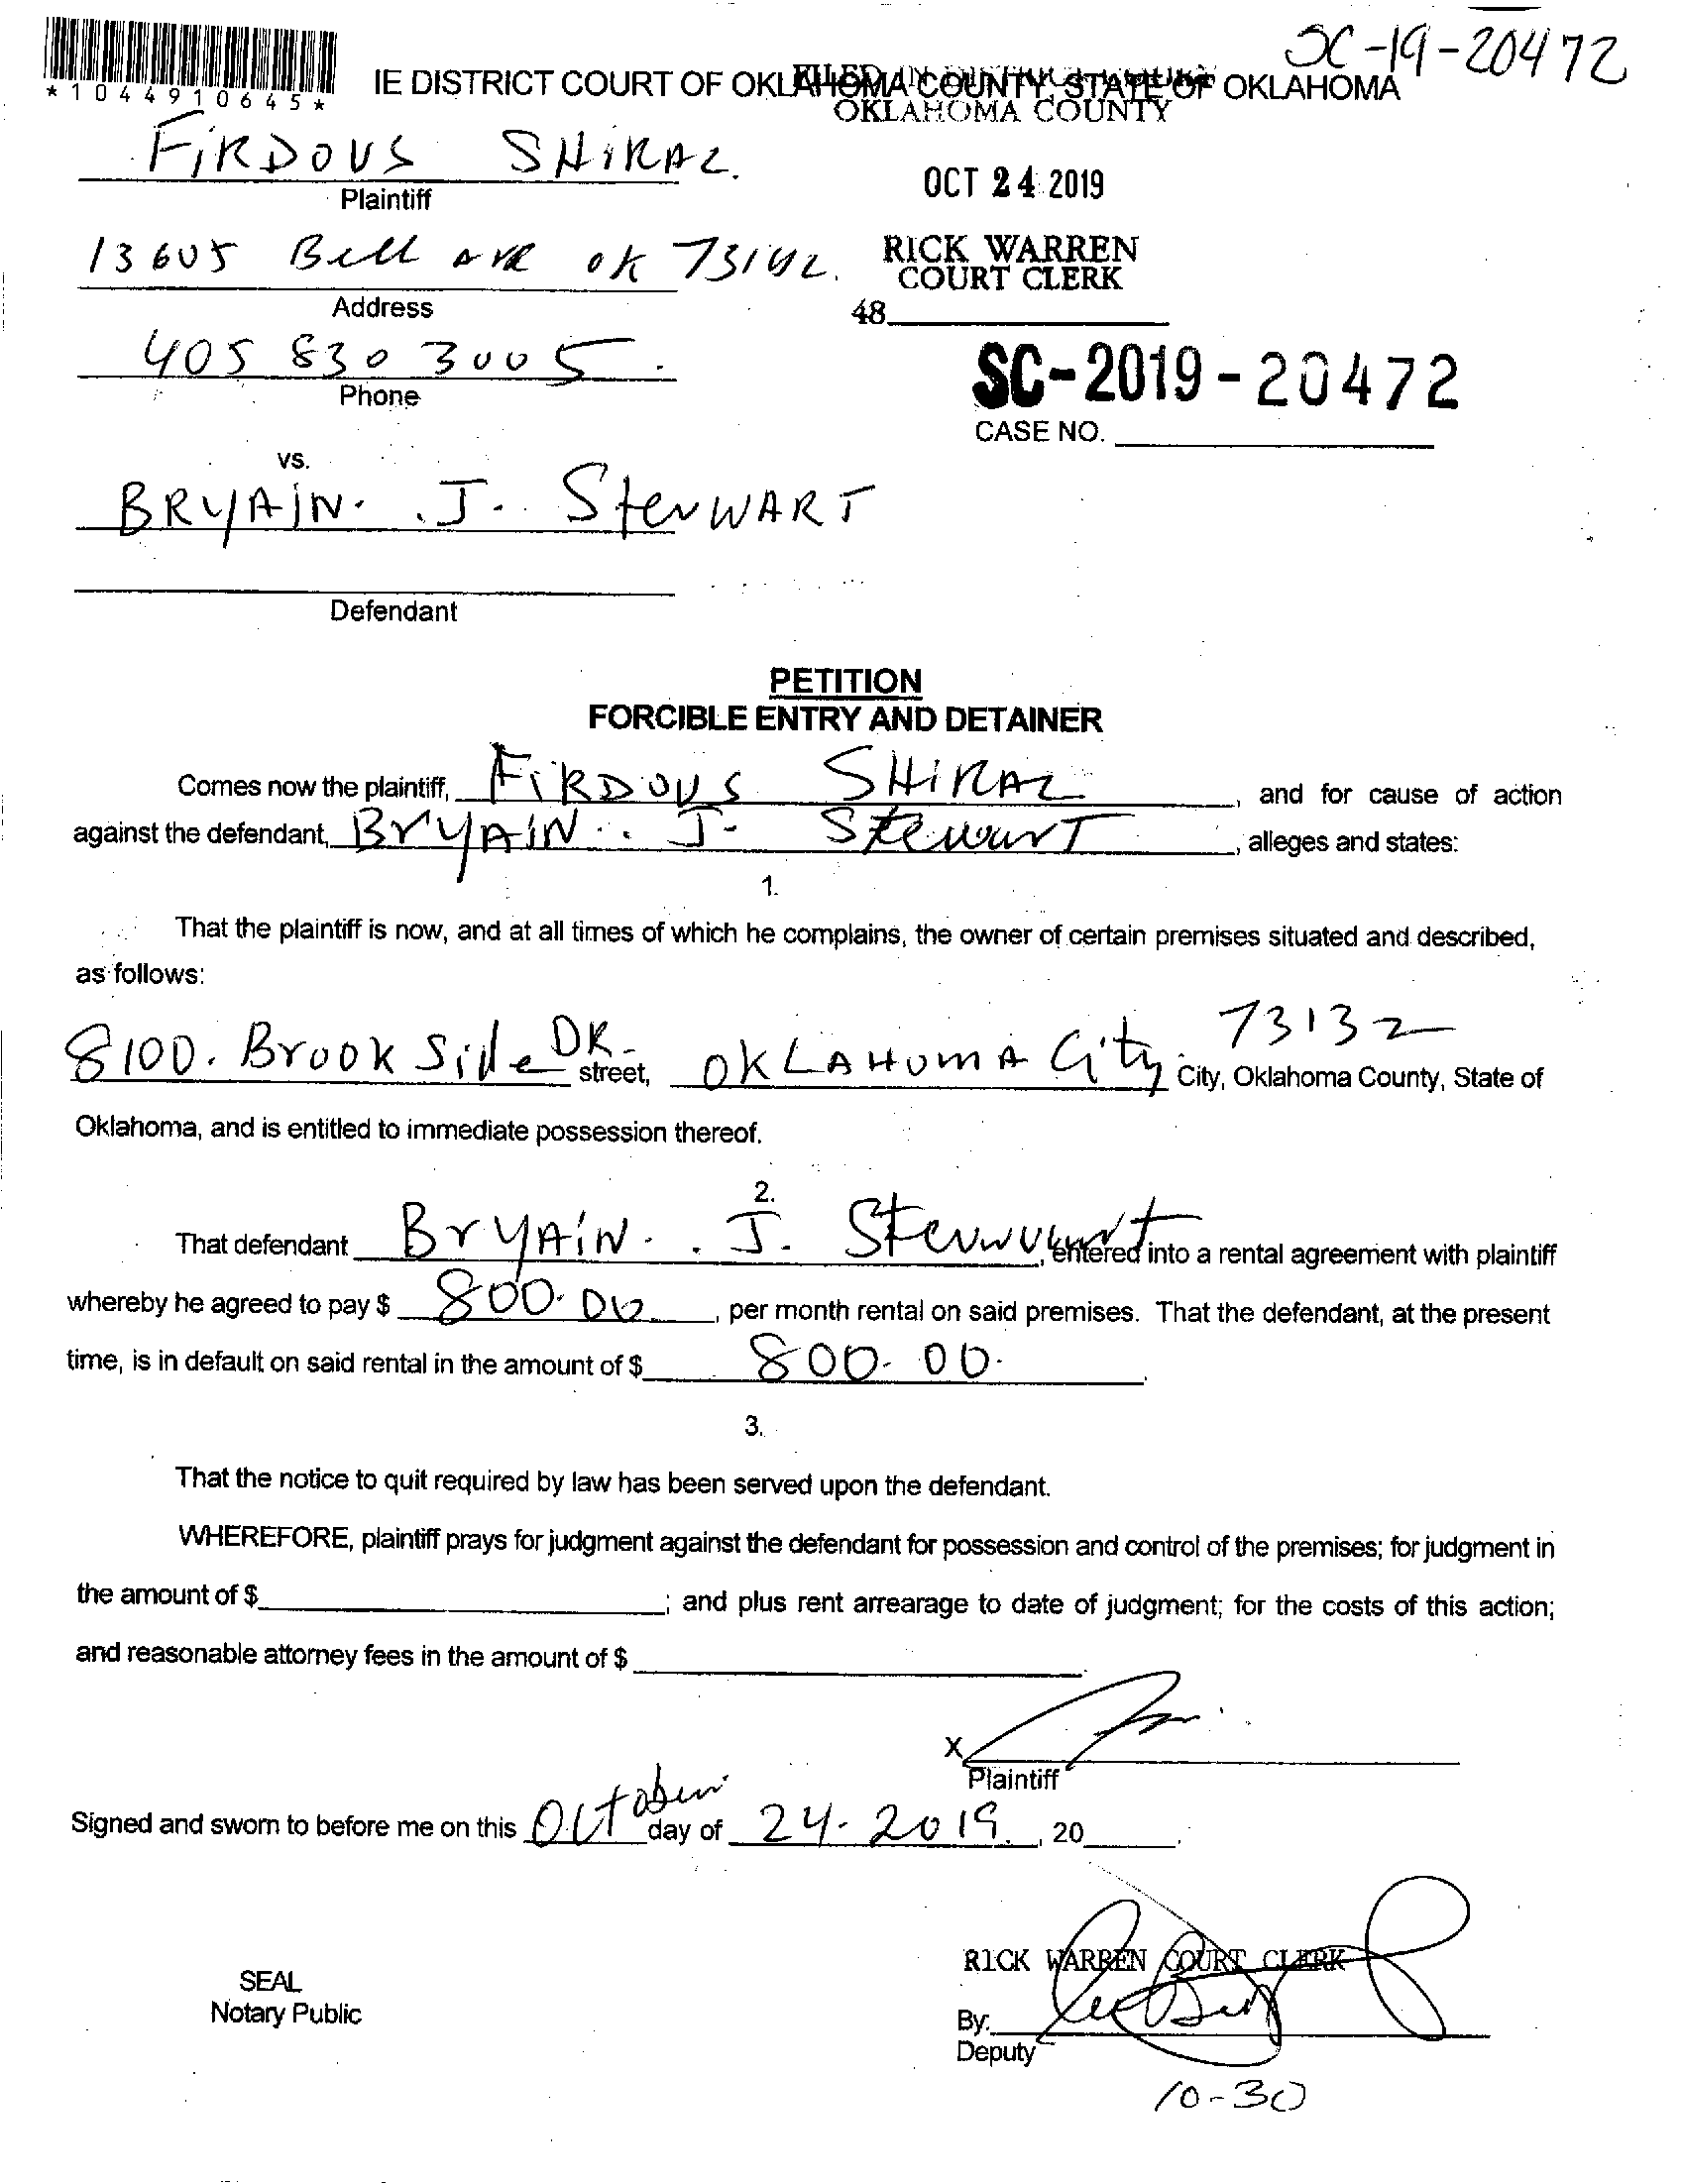 SC-19-20472
*1044910645*
IE DISTRICT COURT OF OKLAHOMA COUNTY, STATE OF OKLAHOMA
FILED IN DISTRICT COURT
OKLAHOMA COUNTY
FiRDOUS SHiRAZ.
Plaintiff
OCT 24 2019
13605 Bell ave ok 73142.
Address
RICK WARREN
COURT CLERK
48
405 830 3005.
Phone
SC-2019-20472
CASE NO.
vs.
BRYAiN. J. StewWART
Defendant
PETITION
FORCIBLE ENTRY AND DETAINER
Comes now the plaintiff, FiRDOUS SHiRAZ, and for cause of action
against the defendant, BrYAiN. J. StewarT, alleges and states:
1.
That the plaintiff is now, and at all times of which he complains, the owner of certain premises situated and described,
as follows:
8100. Brook Side DR. street, OKLAHOMA City 73132 City, Oklahoma County, State of
Oklahoma, and is entitled to immediate possession thereof.
2.
That defendant BrYAiN. J. , entered into a rental agreement with plaintiff
whereby he agreed to pay $ 800.00, per month rental on said premises. That the defendant, at the present
time, is in default on said rental in the amount of $ 800.00.
3.
That the notice to quit required by law has been served upon the defendant.
WHEREFORE, plaintiff prays for judgment against the defendant for possession and control of the premises; for judgment in
the amount of $ ; and plus rent arrearage to date of judgment; for the costs of this action;
and reasonable attorney fees in the amount of $
X
Plaintiff
Signed and sworn to before me on this October day of 24-2019., 20 .
RICK WARREN COURT CLERK
SEAL
Notary Public
By:
Deputy
10-30